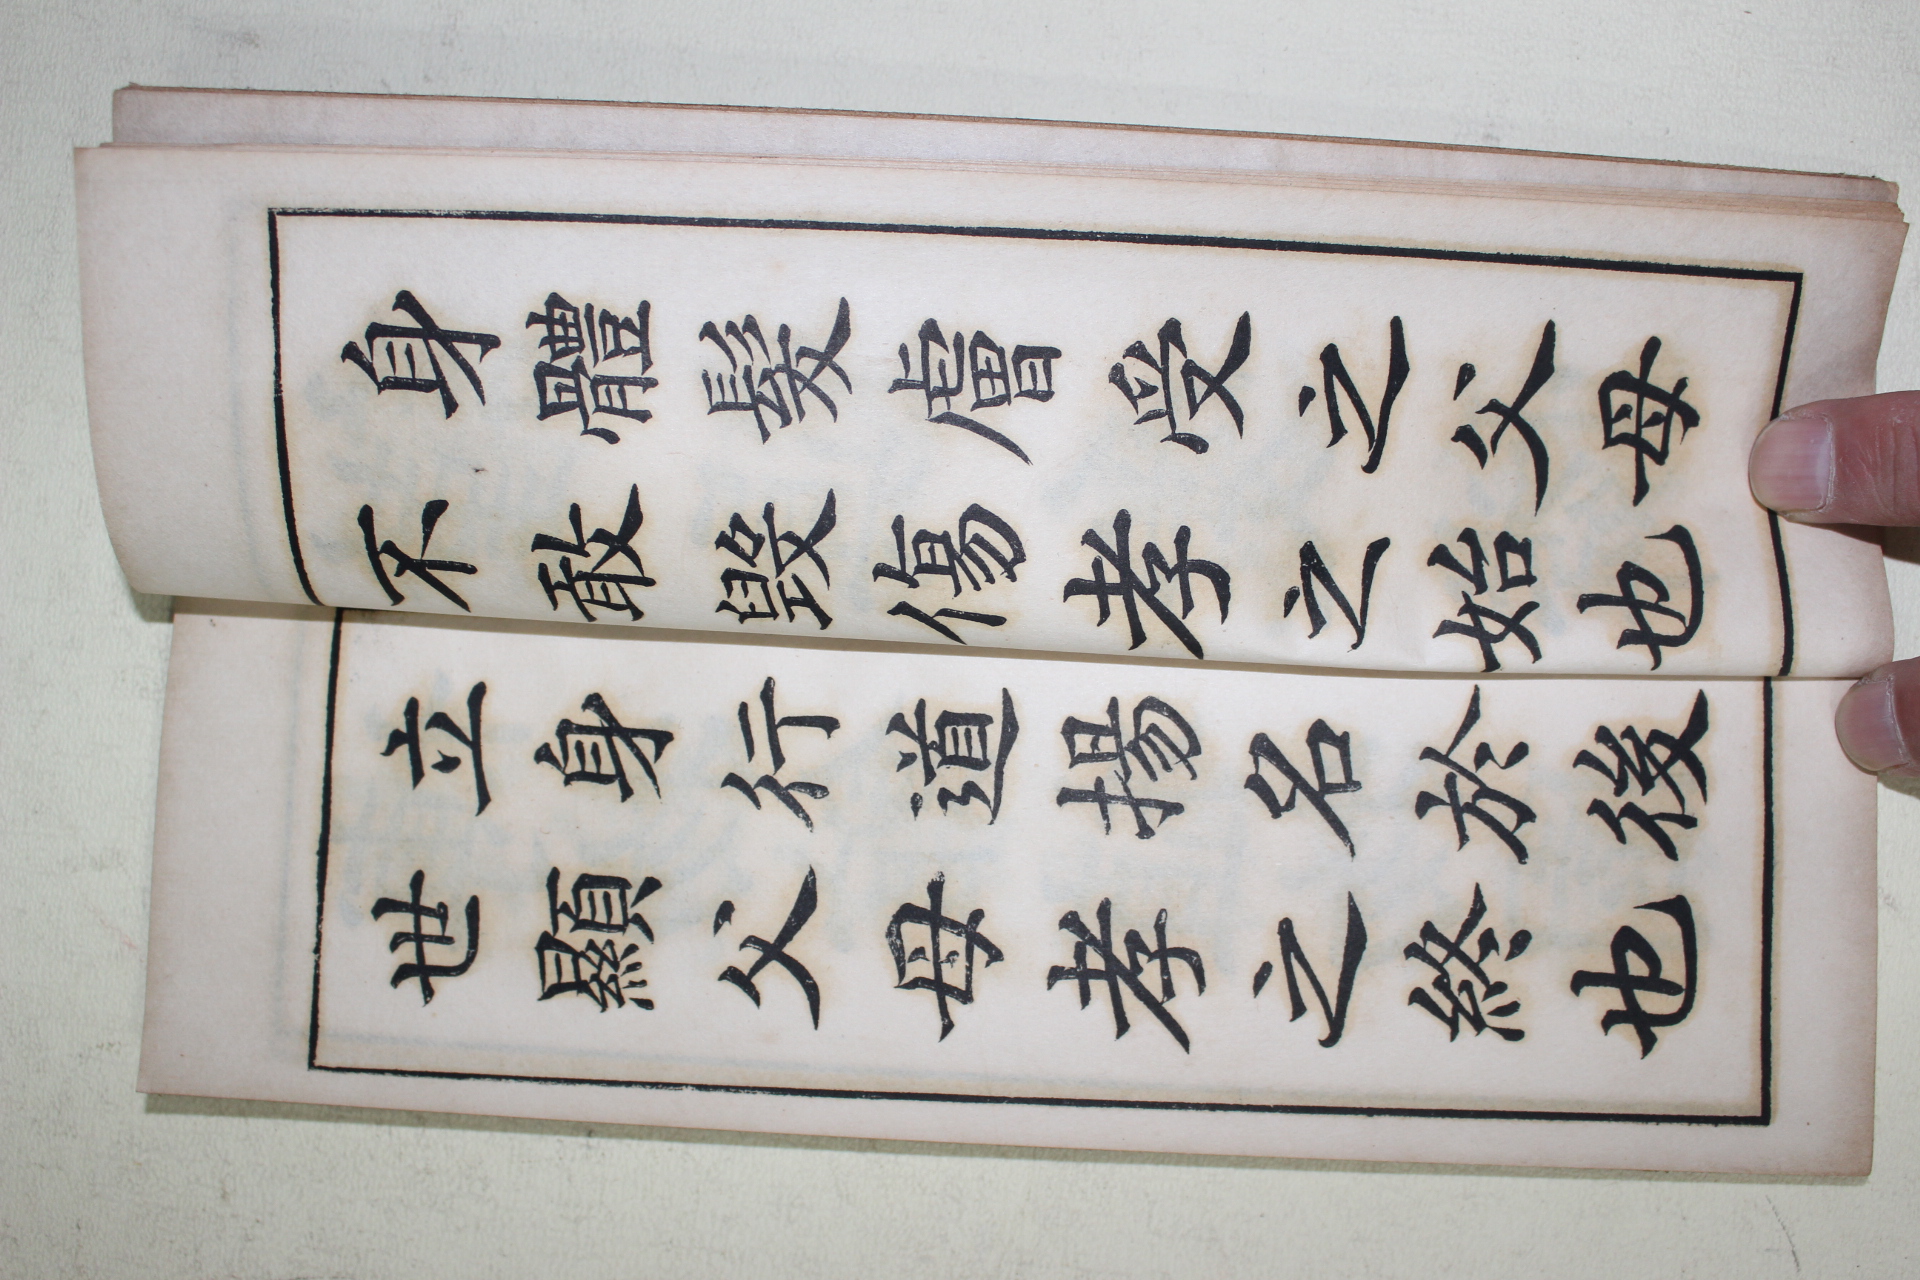 身體髮膚受之父母
不敢毀傷孝之始也
立身行道揚名於後
世顯父母孝之終也